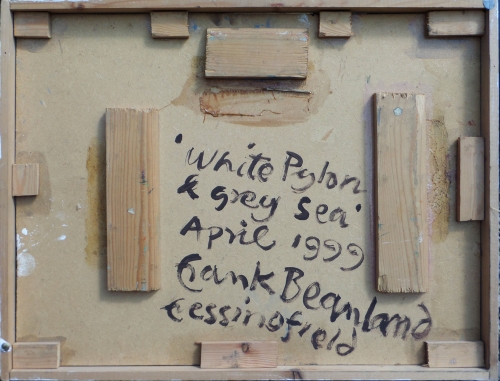 'White Pylon
& grey sea'
April 1999
Frank Beanland
Fessingfield